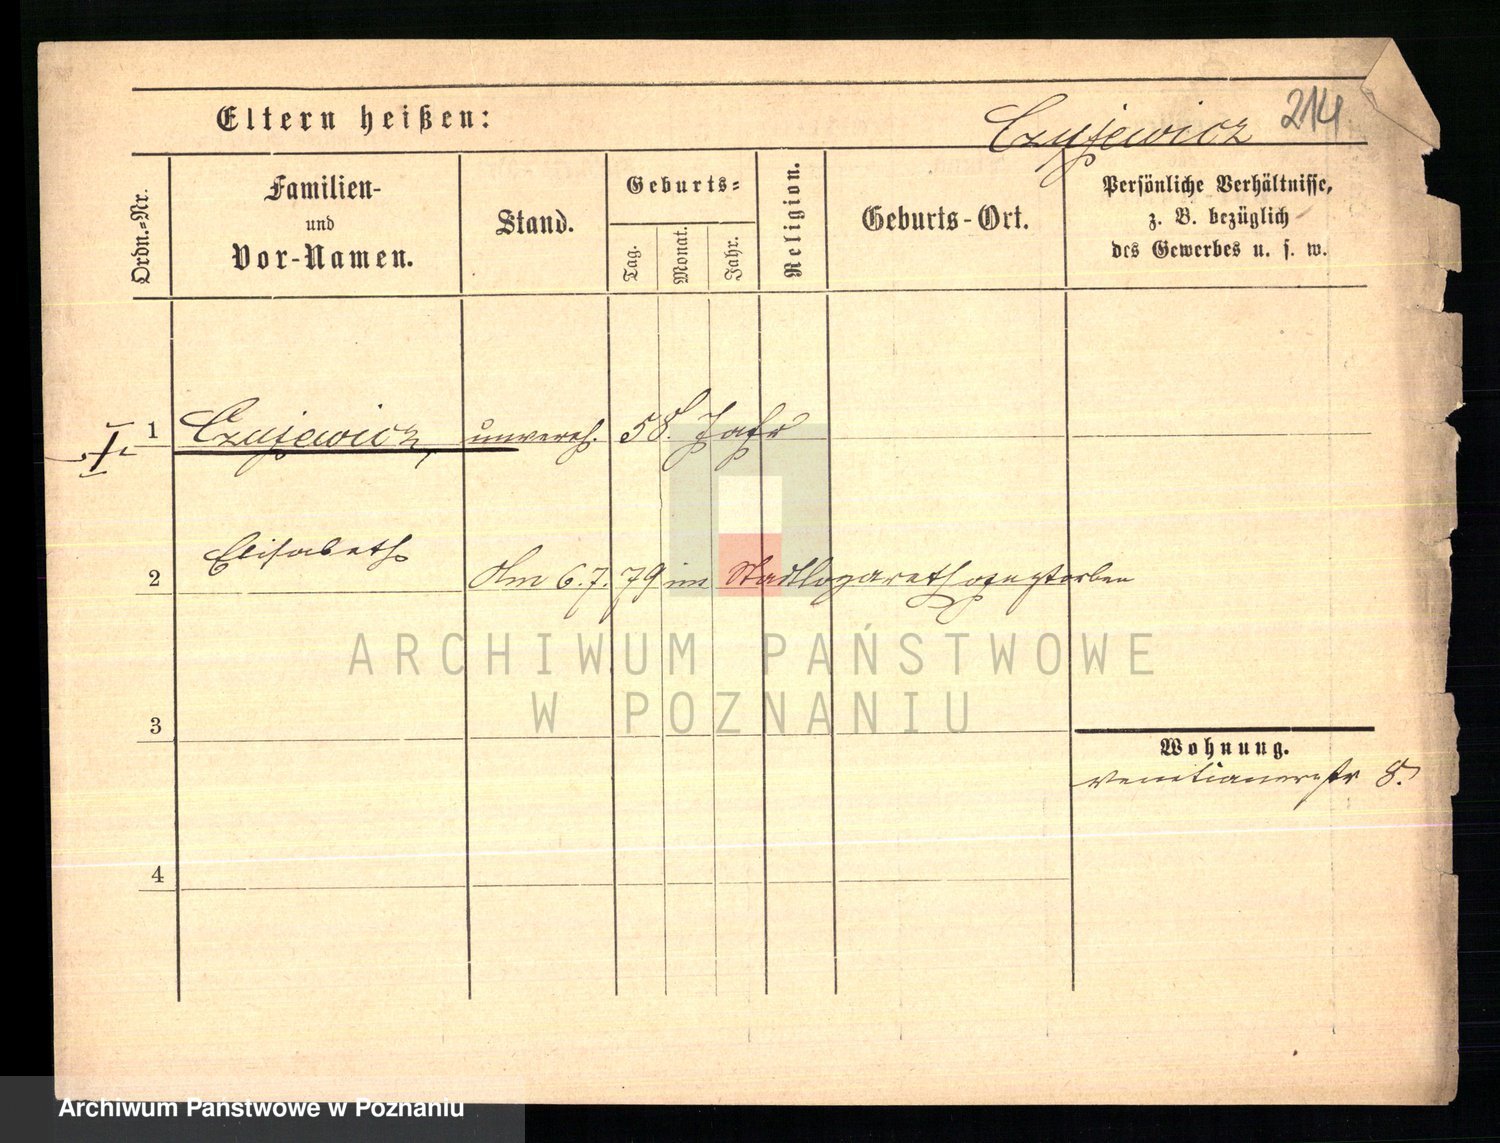 Eltern heißen:
Czujewicz 214
Ordn.-Nr.
Familien-
und
Vor-Namen.
Stand.
Geburts-
Tag.
Monat.
Jahr.
Religion.
Geburts-Ort.
Persönliche Verhältnisse,
z. B. bezüglich
des Gewerbes u. s. w.
1 Czujewicz, unvereh. 58. Jahr
I
2 Elisabeth
Am 6. 7. 79 im Stadtlazareth gestorben
ARCHIWUM PAŃSTWOWE
W POZNANIU
3
Wohnung.
Venetianerstr 8.
4
Archiwum Państwowe w Poznaniu